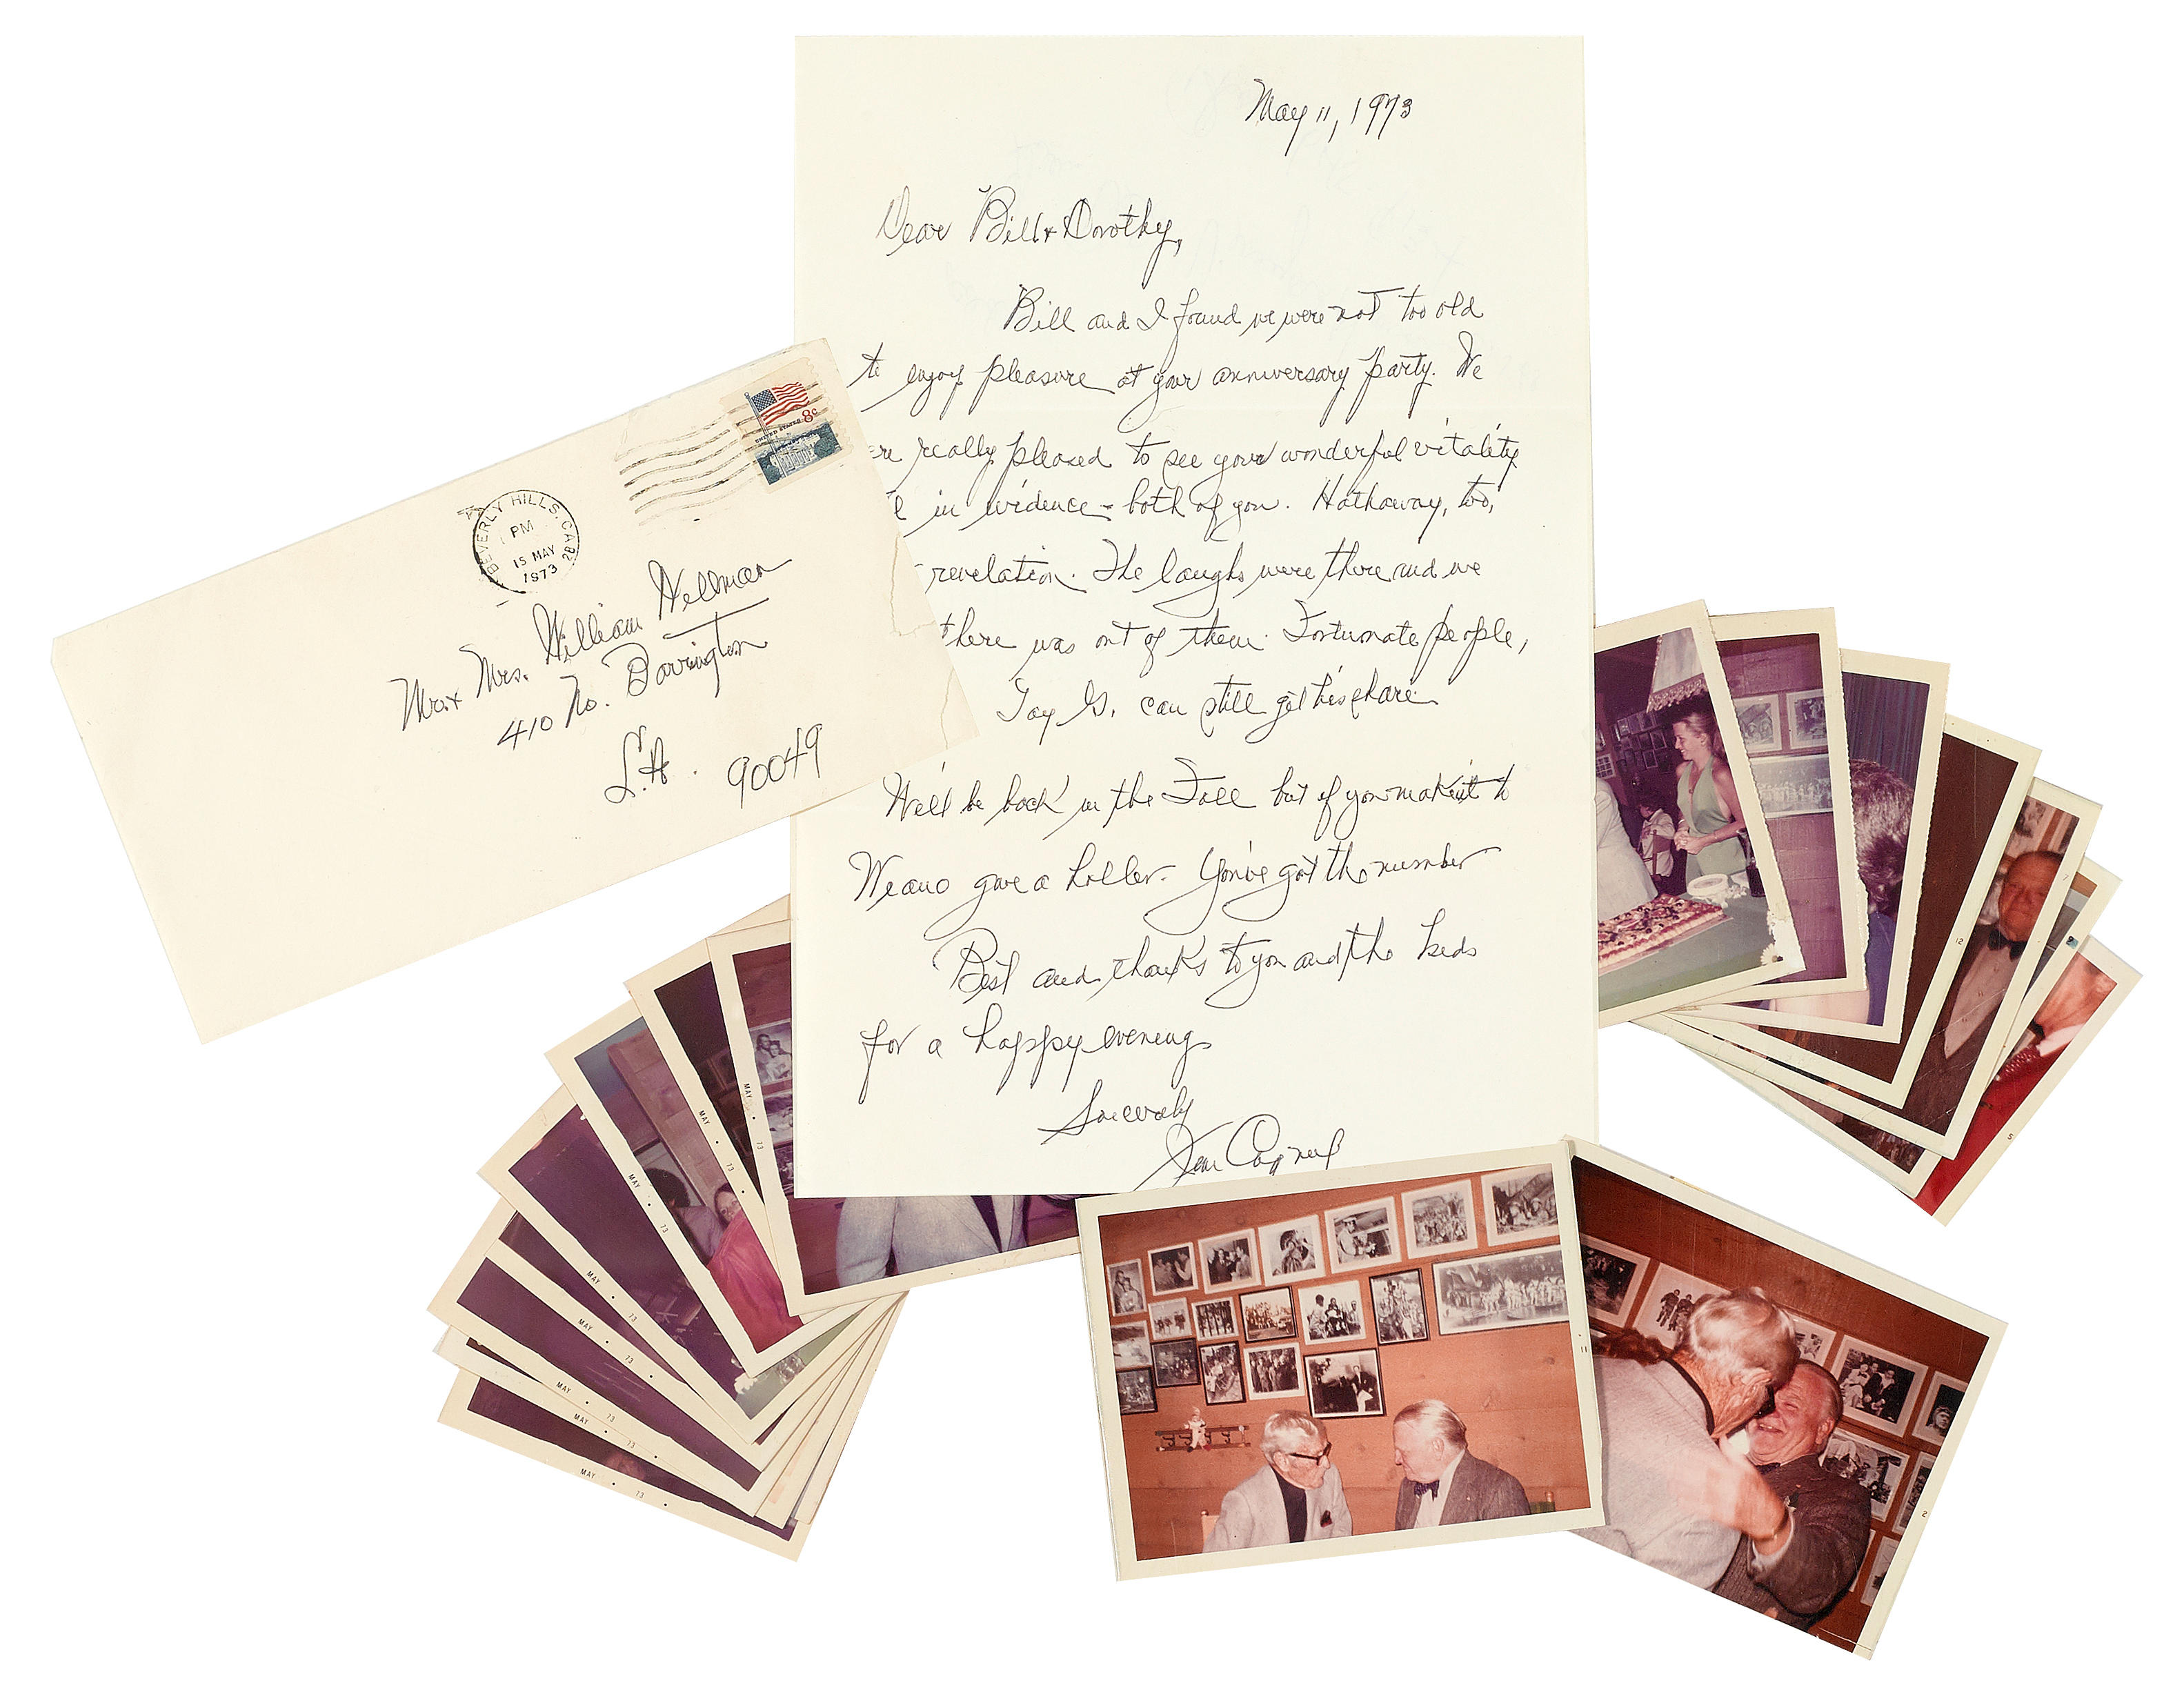 May 11, 1973
Dear Bill + Dorothy,
Bill and I found we were not too old
to enjoy pleasure at your anniversary party. We
ere really pleased to see your wonderful vitality
in evidence - both of you. Hathaway, too,
revelation. The laughs were there and we
there was out of them. Fortunate people,
Tay G. can still get his share.
We'll be back in the Fall but if you make it to
give a holler. You've got the number
Best and thanks to you and the kids
for a happy evening
Sincerely
Jim Cagney
UNITED STATES 8c
BEVERLY HILLS, CA 902
PM
15 MAY
1973
Mr + Mrs. William Wellman
410 No. Barrington
L.A. 90049
MAY • 73 •
MAY • 73 •
MAY • 73 •
MAY • 73 •
MAY • 73 •
MAY • 73 •
MAY • 73 •
MAY • 73 •
12
7
2
5
11
2